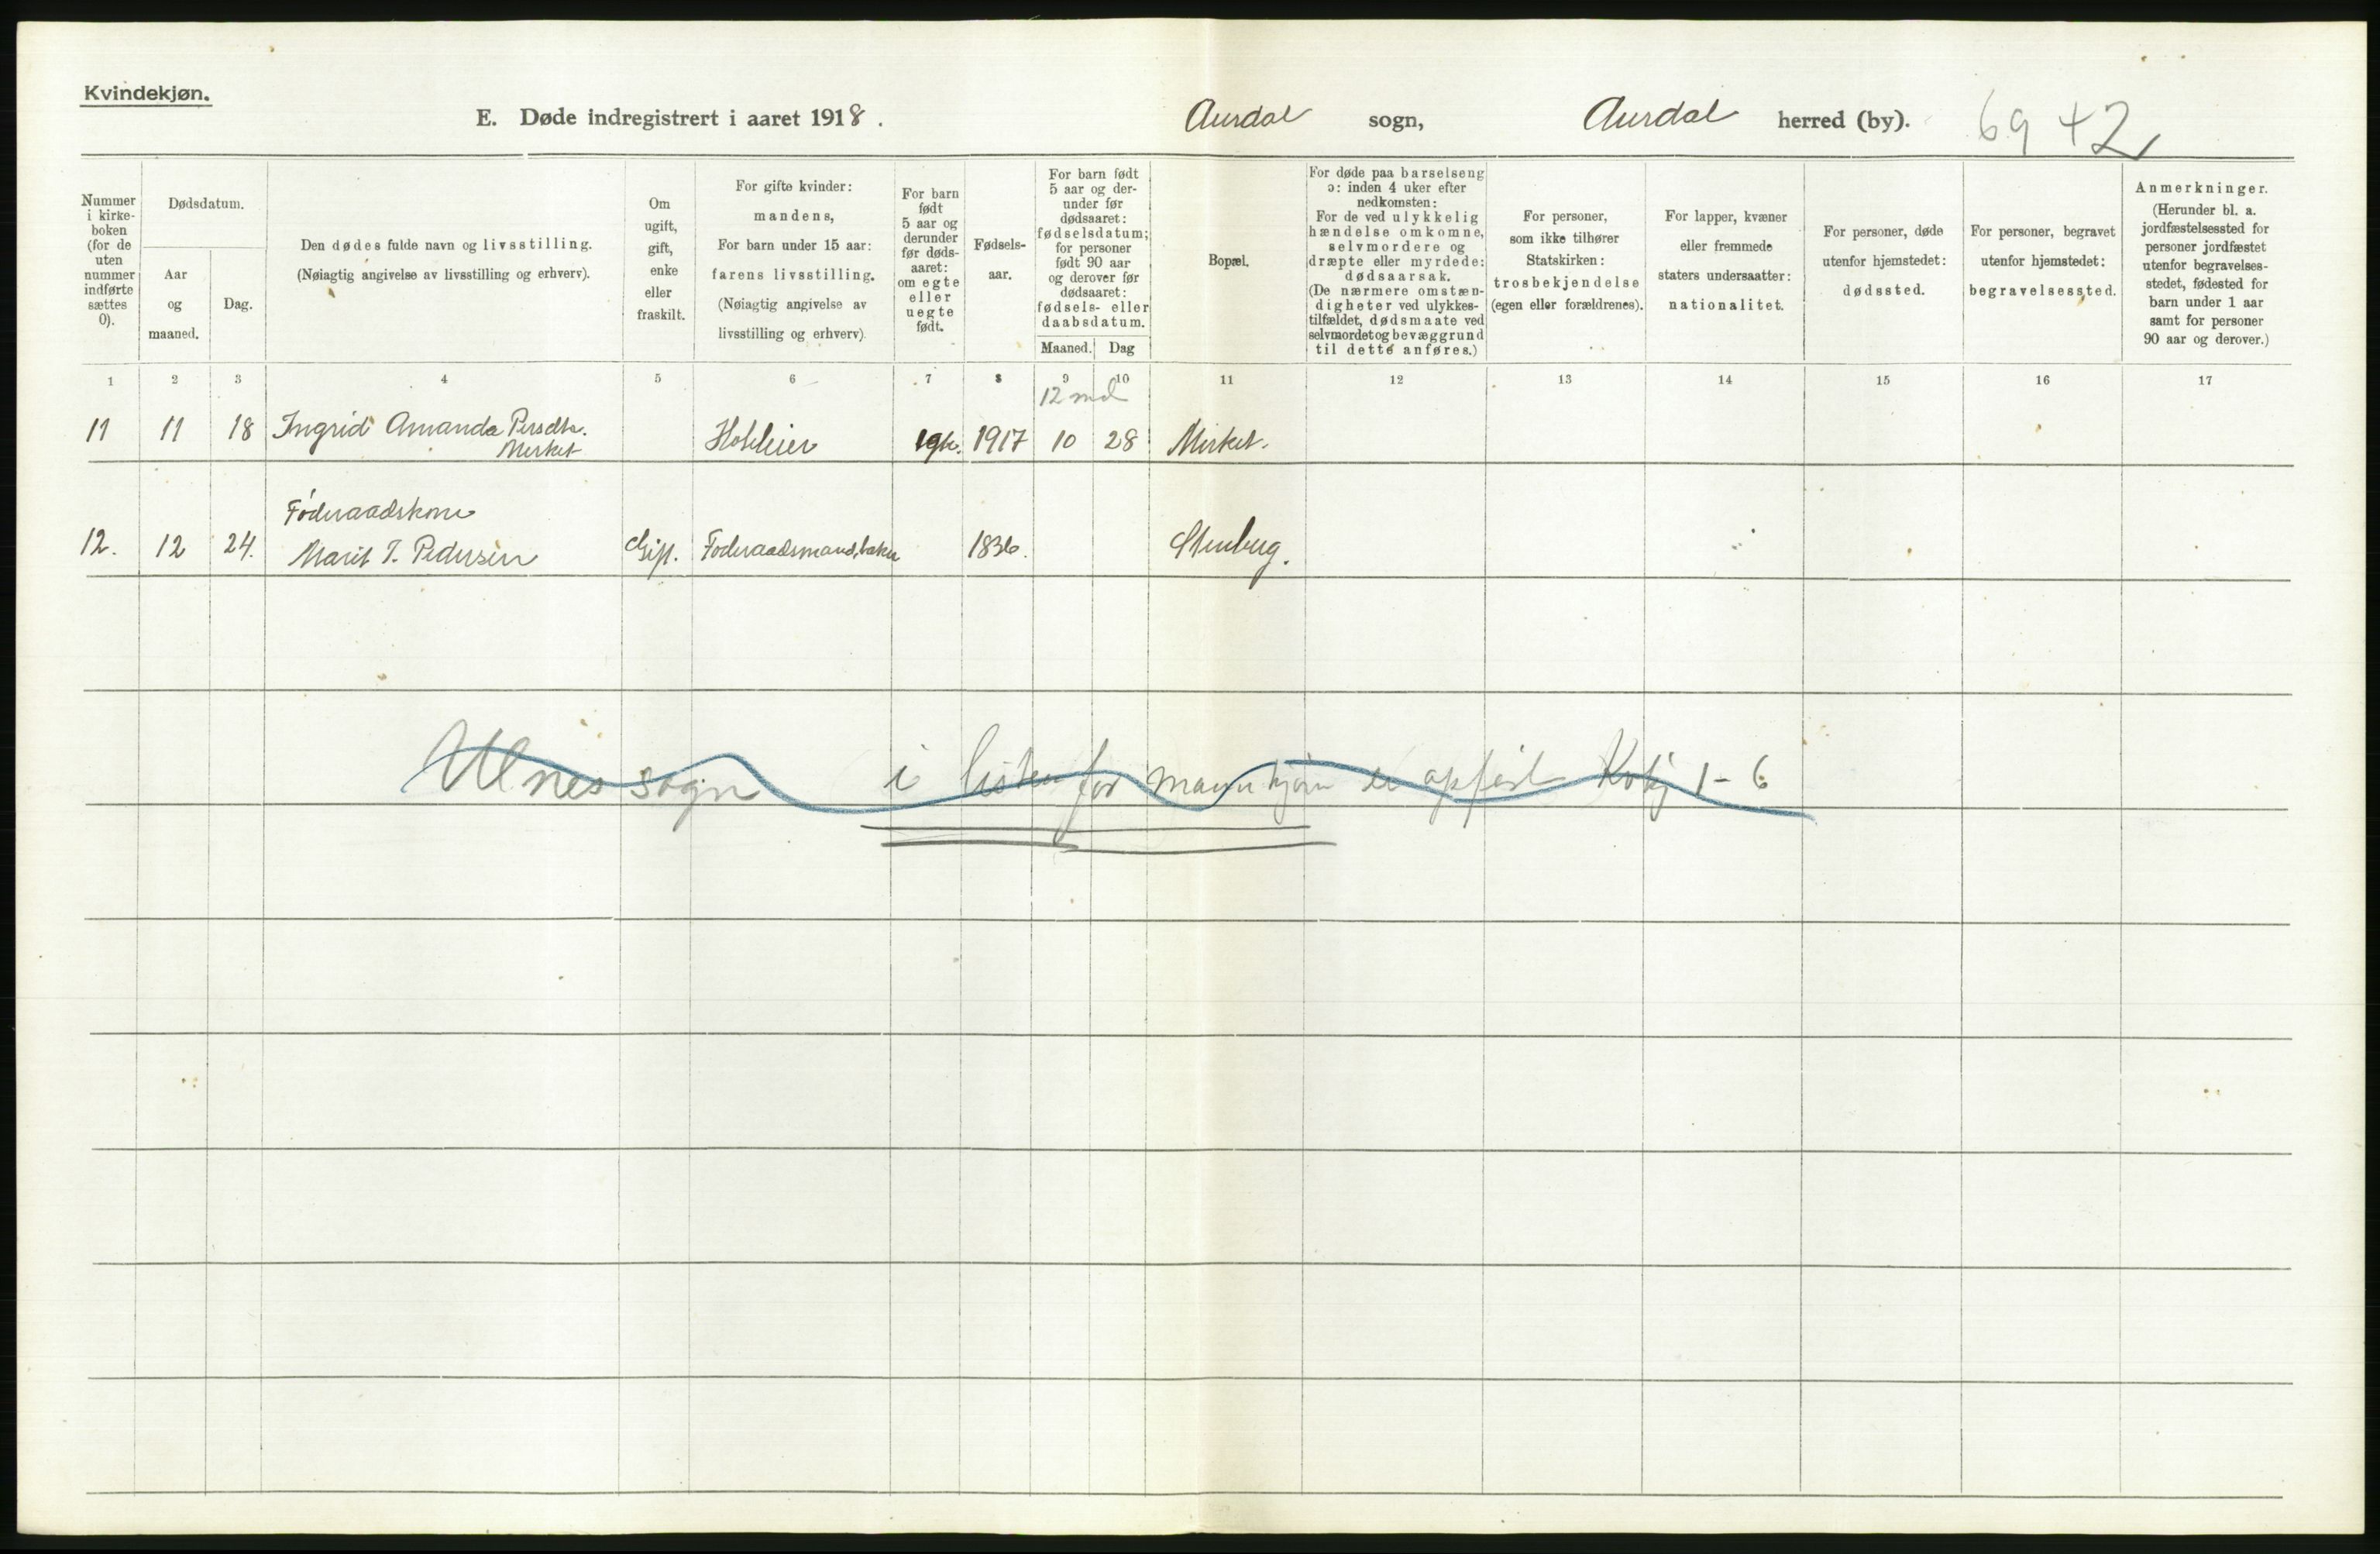 Kvindekjøn.
E. Døde indregistrert i aaret 1918.
Aurdal sogn, Aurdal herred (by). 69 42
Nummer
i kirke-
boken
(for de
uten
nummer
indførte
sættes
0).
Dødsdatum.
Aar
og
maaned.
Dag.
Den dødes fulde navn og livsstilling.
(Nøiagtig angivelse av livsstilling og erhverv).
Om
ugift,
gift,
enke
eller
fraskilt.
For gifte kvinder:
mandens,
For barn under 15 aar:
farens livsstilling.
(Nøiagtig angivelse av
livsstilling og erhverv)
For barn
født
5 aar og
derunder
før døds-
aaret:
om egte
eller
uegte
født.
Fødsels-
aar.
For barn født
5 aar og der-
under før
dødsaaret:
fødselsdatum;
for personer
født 90 aar
og derover før
dødsaaret:
fødsels- eller
daabsdatum.
Maaned. Dag
Bopæl.
For døde paa barselseng
ɔ: inden 4 uker efter
nedkomsten:
For de ved ulykkelig
hændelse omkomne,
selvmordere og
dræpte eller myrdede:
dødsaarsak.
(De nærmere omstæn-
digheter ved ulykkes-
tilfældet, dødsmaate ved
selvmordet og bevæggrund
til dette anføres.)
For personer,
som ikke tilhører
Statskirken:
trosbekjendelse
(egen eller forældrenes).
For lapper, kvæner
eller fremmede
staters undersaatter:
nationalitet.
For personer, døde
utenfor hjemstedet:
dødssted.
For personer, begravet
utenfor hjemstedet:
begravelsessted.
Anmerkninger.
(Herunder bl. a.
jordfæstelsessted for
personer jordfæstet
utenfor begravelses-
stedet, fødested for
barn under 1 aar
samt for personer
90 aar og derover.)
1 2 3 4 5 6 7 8 9 10 11 12 13 14 15 16 17
12 md
11 11 18 Ingrid Amanda Persdtr. 1917 10 28 Mirket.
Mirket
Føderaadskone
12. 12 24. Marit T. Pedersen Gift. Føderaadsmand, baker 1836. Stenberg.
Ulnes sogn i listen for mannkjøn er opført Kvkj 1-6